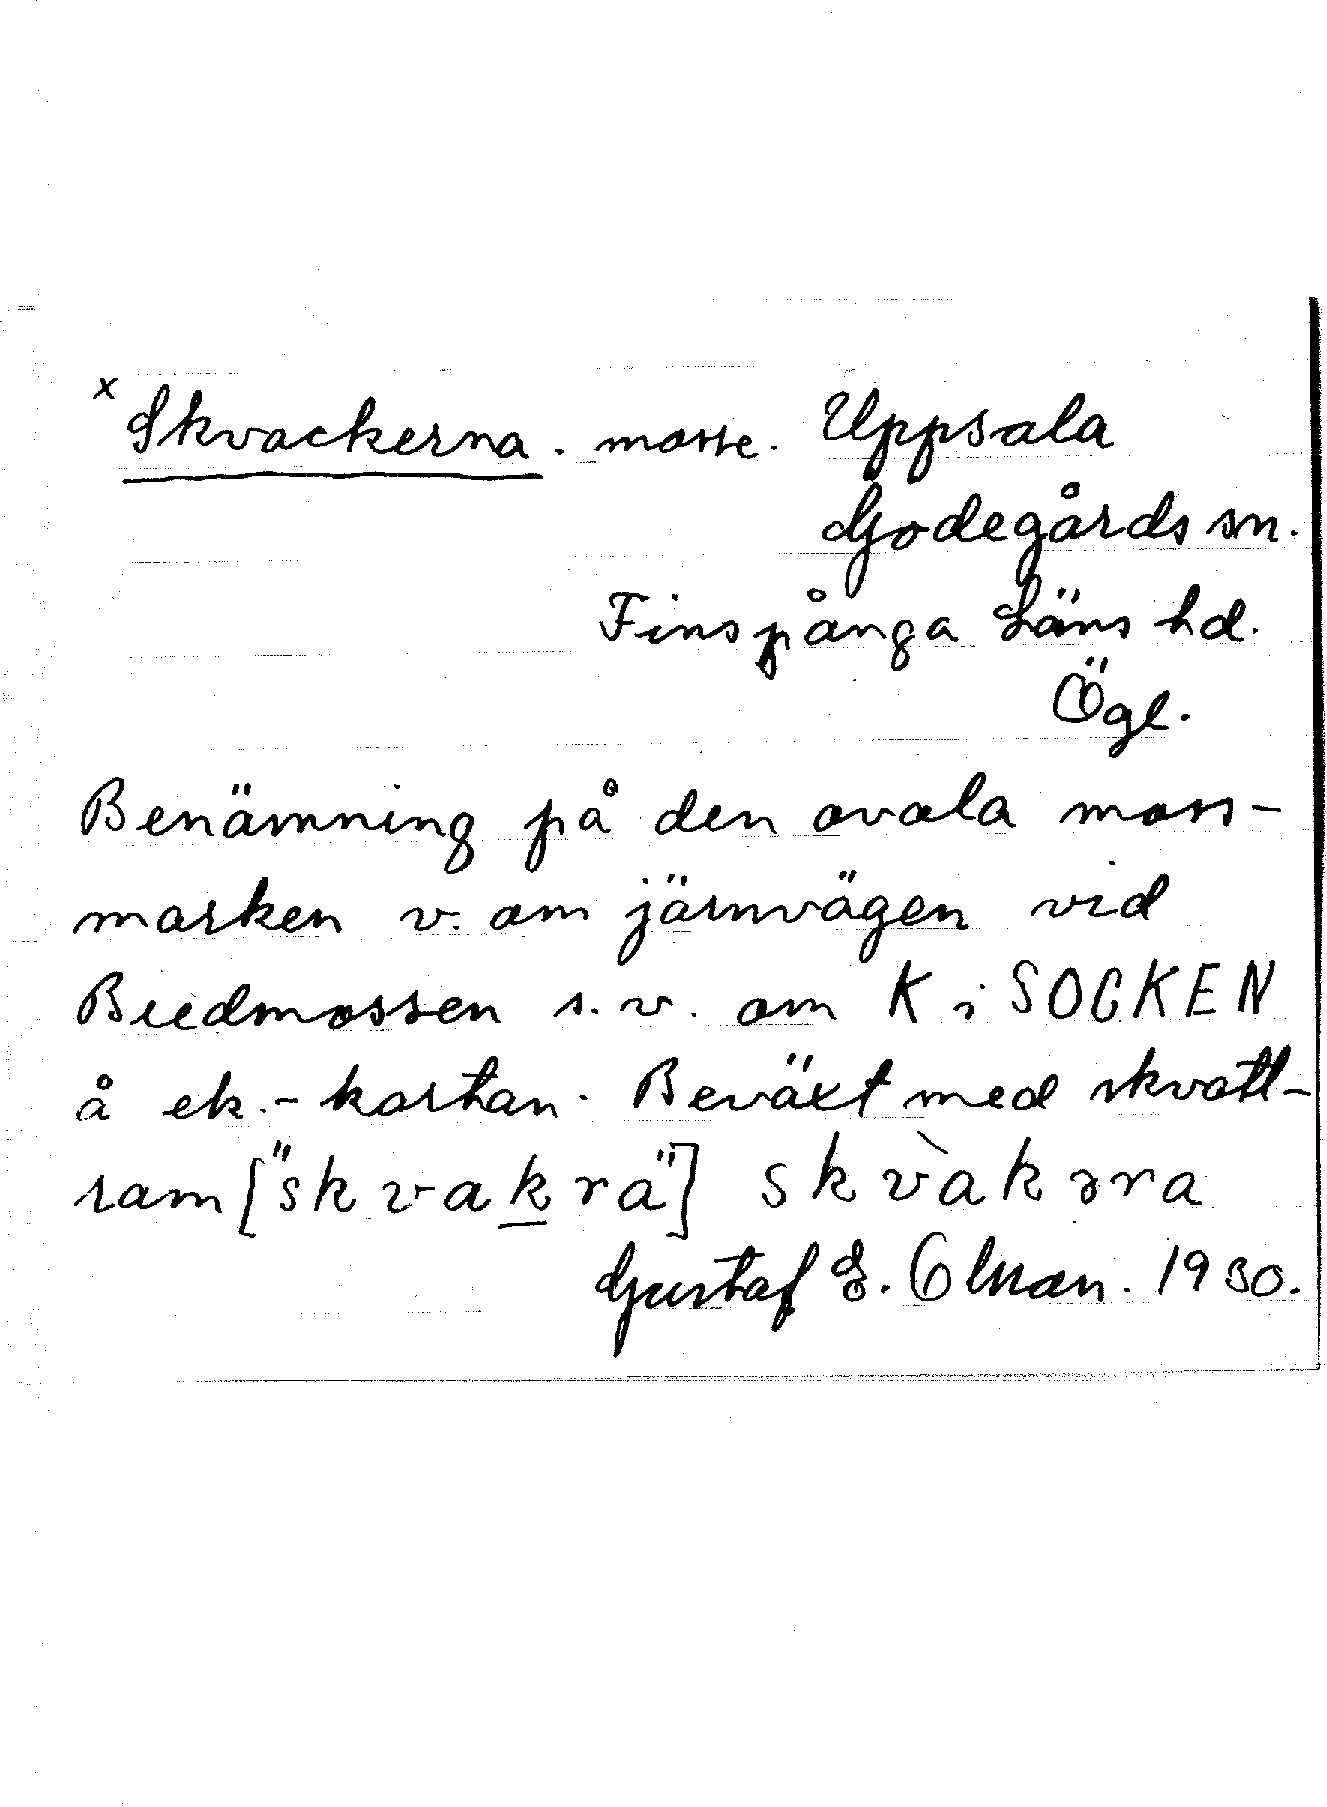 x Skvackerna. mosse. Uppsala
Godegårds sn.
Finspånga Läns hd.
Ögl.
Benämning på den ovala moss-
marken v. om järnvägen vid
Bredmossen s.v. om K i SOCKEN
å ek.-kartan. Beväxt med skvatt-
ram ["skvakra"] skvàkəra
Gustaf E. Olman. 1930.